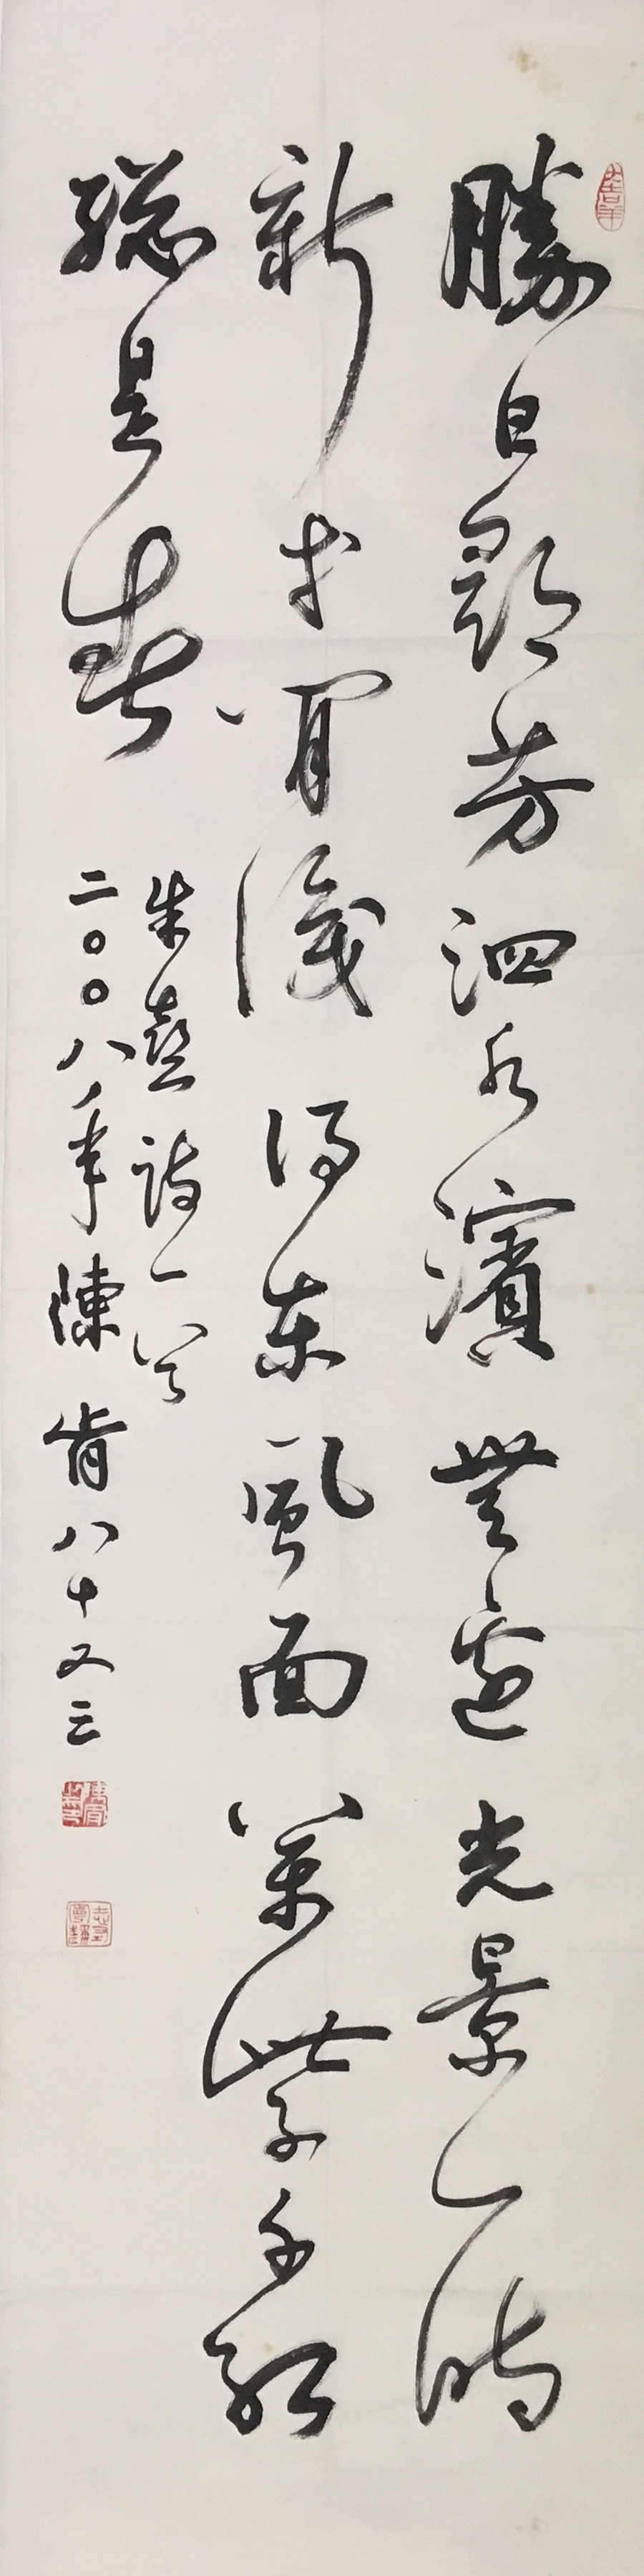 大吉羊
勝日尋芳泗水濱無邊光景一時
新等閒識得東風面萬紫千紅
總是春
朱熹詩一首
二〇〇八年陳肯八十又三